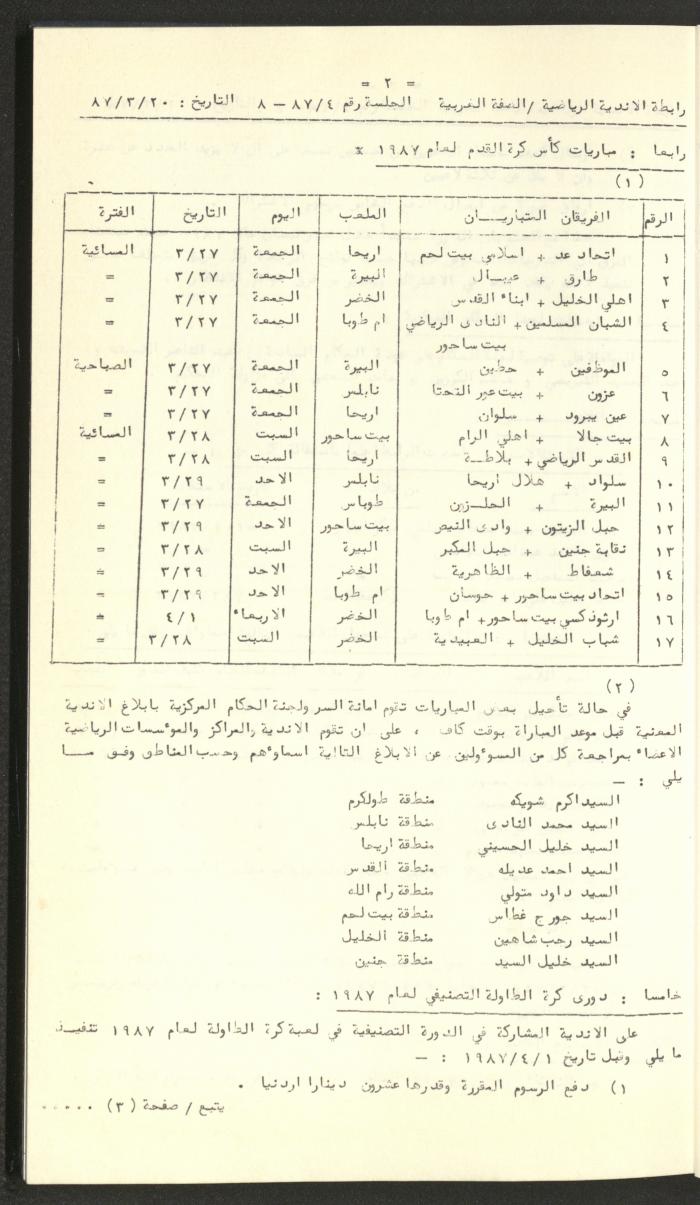 = ٢ =
رابطة الاندية الرياضية / الضفة الغربية الجلسة رقم ٨٧/٤ — ٨ التاريخ : ٨٧/٣/٢٠
رابعا : مباريات كأس كرة القدم لعام ١٩٨٧ :
(١)
الرقم الفريقان المتباريـــان الملعب اليوم التاريخ الفترة
١ اتحاد + اسلامي بيت لحم اريحا الجمعة ٣/٢٧ المسائية
٢ طارق + عيبـال البيرة الجمعة ٣/٢٧ =
٣ اهلي الخليل + ابناء القدس الخضر الجمعة ٣/٢٧ =
٤ الشبان المسلمين + النادى الرياضي ام طوبا الجمعة ٣/٢٧ =
بيت ساحور
٥ الموظفين + حطين البيرة الجمعة ٣/٢٧ الصباحية
٦ عزون + بيت عور التحتا نابلس الجمعة ٣/٢٧ =
٧ عين يبرود + سلوان اريحا الجمعة ٣/٢٧ =
٨ بيت جالا + اهلي الرام بيت ساحور السبت ٣/٢٨ المسائية
٩ القدس الرياضي + بلاطــة اريحا السبت ٣/٢٨ =
١٠ سلواد + هلال اريحا نابلس الاحد ٣/٢٩ =
١١ البيرة + الحلـزون طوباس الجمعة ٣/٢٧ =
١٢ جبل الزيتون + وادى النيص بيت ساحور الاحد ٣/٢٩ =
١٣ نقابة جنين + جبل المكبر البيرة السبت ٣/٢٨ =
١٤ شعفاط + الظاهرية الخضر الاحد ٣/٢٩ =
١٥ اتحاد بيت ساحور + حوسان ام طوبا الاحد ٣/٢٩ =
١٦ ارثوذكسي بيت ساحور + ام طوبا الخضر الاربعاء ٤/١ =
١٧ شباب الخليل + العبيدية الخضر السبت ٣/٢٨ =
(٢)
في حالة تأجيل بعض المباريات تقوم امانة السر ولجنة الحكام المركزية بابلاغ الاندية
المعنية قبل موعد المباراة بوقت كاف ، على ان تقوم الاندية والمراكز والموءسسات الرياضية
الاعضاء بمراجعة كل من المسوءولين عن الابلاغ التالية اسماوءهم وحسب المناطق وفق مـــا
يلي : —
السيد اكرم شويكه منطقة طولكرم
السيد محمد النادى منطقة نابلس
السيد خليل الحسيني منطقة اريحا
السيد احمد عديله منطقة القدس
السيد داود متولي منطقة رام الله
السيد جورج غطاس منطقة بيت لحم
السيد رجب شاهين منطقة الخليل
السيد خليل السيد منطقة جنين
خامسا : دورى كرة الطاولة التصنيفي لعام ١٩٨٧ :
على الاندية المشاركة في الدورة التصنيفية في لعبة كرة الطاولة لعام ١٩٨٧ تنفيـذ
ما يلي وقبل تاريخ ١٩٨٧/٤/١ : —
١) دفع الرسوم المقررة وقدرها عشرون دينارا اردنيا .
يتبع / صفحة (٣) .....